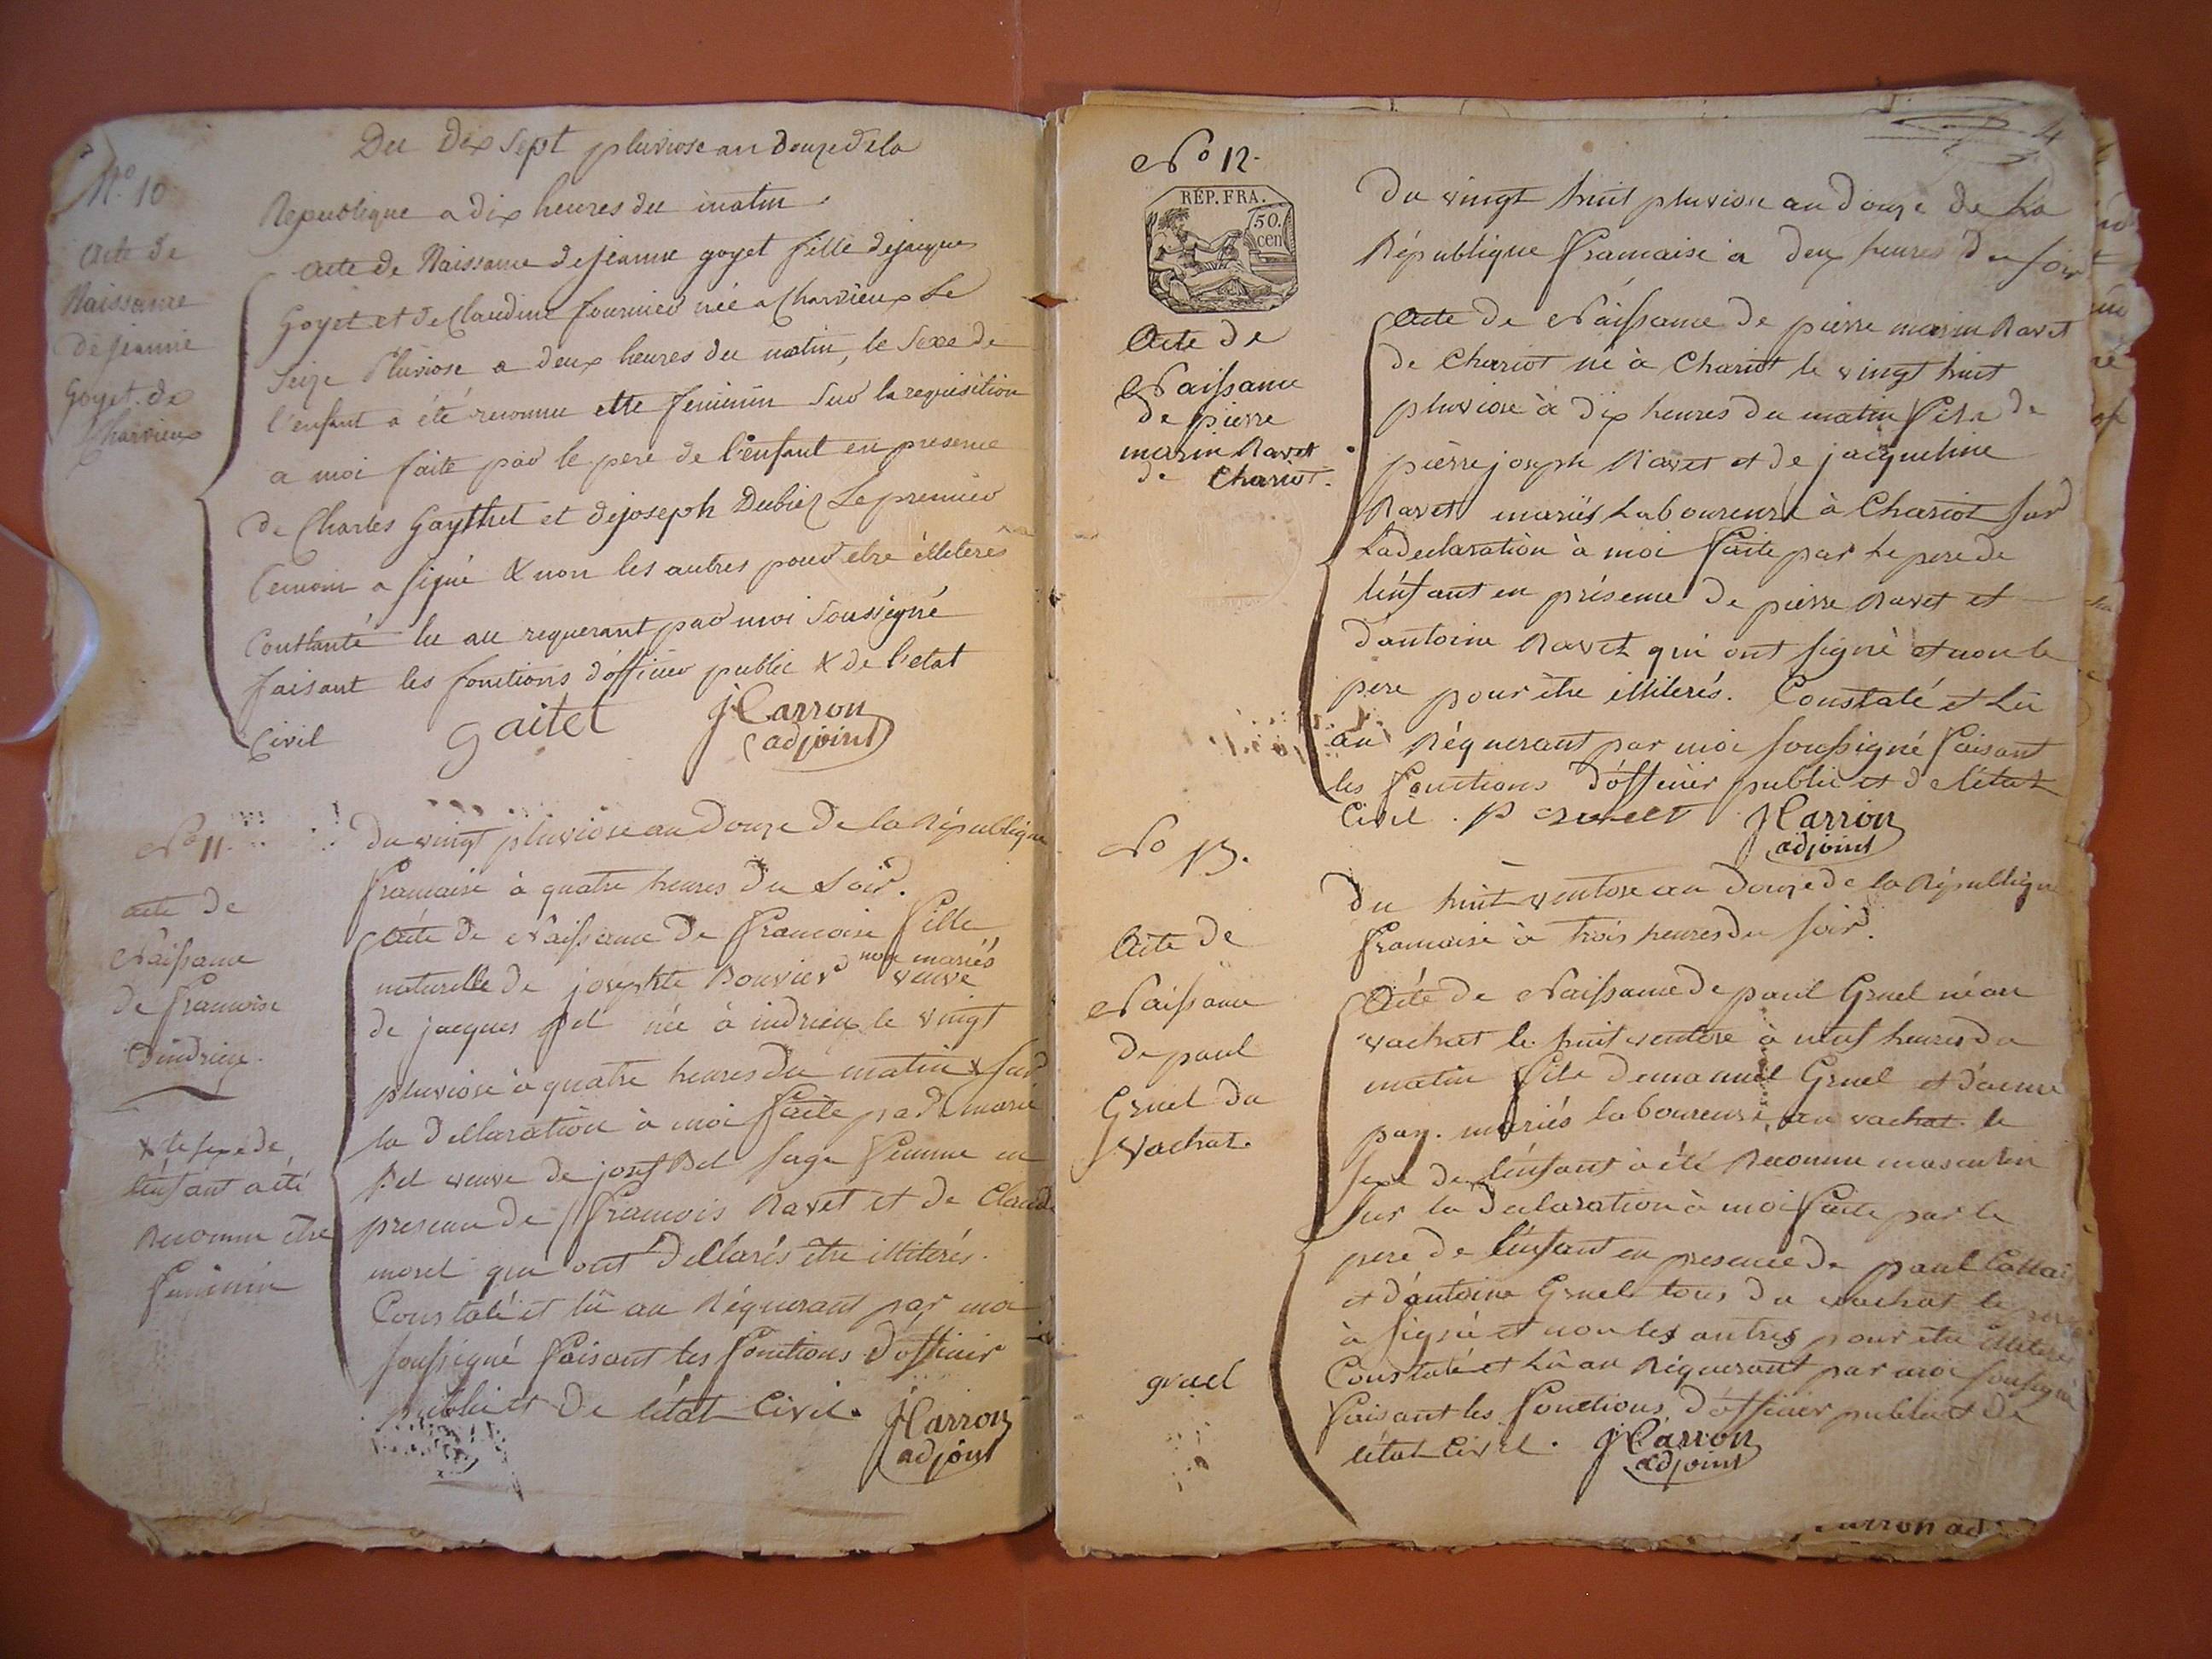 N.o 10
Acte de
Naissance
de jeanne
Goyet de
Charvieux
Du Dix Sept pluviose an douze de la
Republique a dix heures du matin
Acte de Naissance de jeanne goyet fille de jacques
Goyet et de Claudine fournier née a Charvieux Le
Seize Pluviose a deux heures du matin, le Sexe de
l'enfant a été reconnu etre feminin Sur la requisition
a moi faite par le pere de l'enfant en presence
de Charles Gaythet et de joseph Dubiez Le premier
temoin a signé & non les autres pour etre élliterés
Constanté lu au requerant par moi Soussigné
faisant les fonctions d'officier public & de l'etat
Civil
gaitet
J Carron
adjoint
No 11.
acte de
Naissance
de francoise
d'indrieux.
x le sexe de
l'enfant a été
Reconnu être
feminin
Du vingt pluviose an Douze De la République
francaise à quatre heures Du Soir.
Acte de Naissance De francoise fille
non mariés
naturelle de josephte Bouvier veuve
de jacques Bel née à indrieux le vingt
pluviose à quatre heures du matin x sur
la declaration à moi faite par marie
Bel veuve de josef Bel sage femme en
presence de francois Ravet et de Claude
morel qui ont déclarés être illiterés.
Constaté et lû au Réquerant par moi
soussigné faisant les fonctions d'officier
public et De l'état Civil.
J Carron
adjoint
4
No 12.
REP. FRA.
50.
cen
Acte de
Naissance
de pierre
marin Ravet
de Chariot.
Du vingt huit pluviose an Douze De La
République francaise à deux heures Du soir
Acte de Naissance de pierre marin Ravet
de Chariot né à Chariot le vingt huit
pluviose à dix heures du matin fils de
pierre joseph Ravet et de jacqueline
Ravet mariés Laboureurs à Chariot sur
La declaration à moi faite par Le pere de
l'enfant en présence De pierre Ravet et
d'antoine Ravet qui ont signé et non le
pere pour être illiterés. Constaté et Lu
au Réquerant par moi soussigné faisant
les fonctions d'officier public et de l'état
Civil. P ravet
J Carron
adjoint
No 13.
Acte de
Naissance
de paul
Gruel du
vachat.
gruel
Du huit ventose an Douze de la République
francaise à trois heures du soir.
Acte de Naissance de paul Gruel né au
vachat le huit ventose à neuf heures du
matin fils d'emanuel Gruel et d'anne
pay. mariés laboureurs, au vachat le
sexe de l'enfant à été Reconnu masculin
sur la declaration à moi faite par le
pere de l'enfant en presence de paul
et d'antoine Gruel tous du vachat le pere
à signé et non les autres pour etre illiterés
Constaté et Lû au Réquerant par moi soussigné
faisant les fonctions d'officier public et De
l'état Civil.
J Carron
adjoint
Carron ad